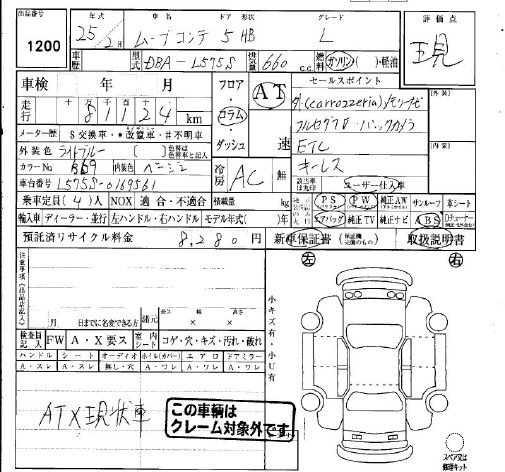 出品番号 年式 車名 ドア 形状 グレード 評価点
1200 25年2月 ムーブコンテ 5 HB L 現
車歴 型式 DBA-L575S 排気量 660 c.c. 燃料 ガソリン・軽油
車検 年 月 フロア・コラム・ダッシュ AT 速 セールスポイント
走行 81124 km 外(carrozzeria)メモリーナビ
メーター歴 $交換車・*改竄車・#不明車 フルセグTV・バックカメラ
外装色 ライトブルー ETC
カラーNo B59 内装色 ベージュ 冷房 AC 無 キーレス
車台番号 L575S-0169561 該当車は丸印 ユーザー仕入車
乗車定員(4)人 NOX 適合・不適合 積載量 kg PS PW 純正AW サンルーフ 革シート
輸入車 ディーラー・並行 左ハンドル・右ハンドル モデル年式( )年 エアバッグ 純正TV 純正ナビ ABS
預託済リサイクル料金 8,280円 新車保証書 取扱説明書
注意事項(出品店記入) 左 右
月 日までに名変できる方 諸元 長さ × 幅 × 高さ
小キズ有・小U有
検査員記入 FW A・X要ス 室内シート コゲ・穴・キズ・汚れ・破れ
ハンドル シート オーディオ ホイル(カバー) エアロ ドアミラー
A・スレ A・スレ 無し・穴 A・ワレ A・ワレ A・ワレ
ATX現状車
この車輌は
クレーム対象外です。
スペア又は
修理キット